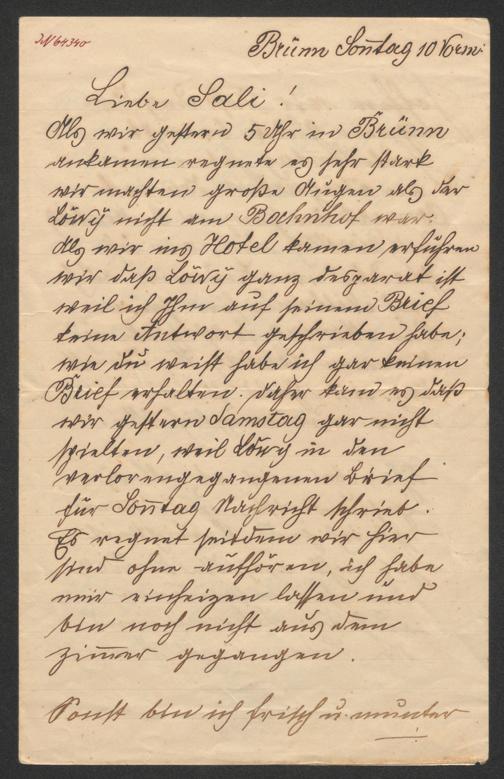 JN 64340
Brünn Sonntag 10 Vorm.
Liebe Sali!
Als wir gestern 5 Uhr in Brünn
ankamen regnete es sehr stark
wir machten große Augen als der
Löwÿ nicht am Bahnhof war.
Als wir ins Hotel kamen erfuhren
wir daß Löwÿ ganz desparat ist
weil ich Ihm auf seinem Brief
keine Antwort geschrieben habe;
wie du weist habe ich gar keinen
Brief erhalten. daher kam es daß
wir gestern Samstag gar nicht
spielten, weil Löwy in den
verlorengegangenen Brief
für Son̄tag Nachricht schrieb.
Es regnet seitdem wir hier
sind ohne aufhören, ich habe
mir einheizen lassen und
bin noch nicht aus dem
Zim̄er gegangen.
Sonst bin ich frisch u. munter